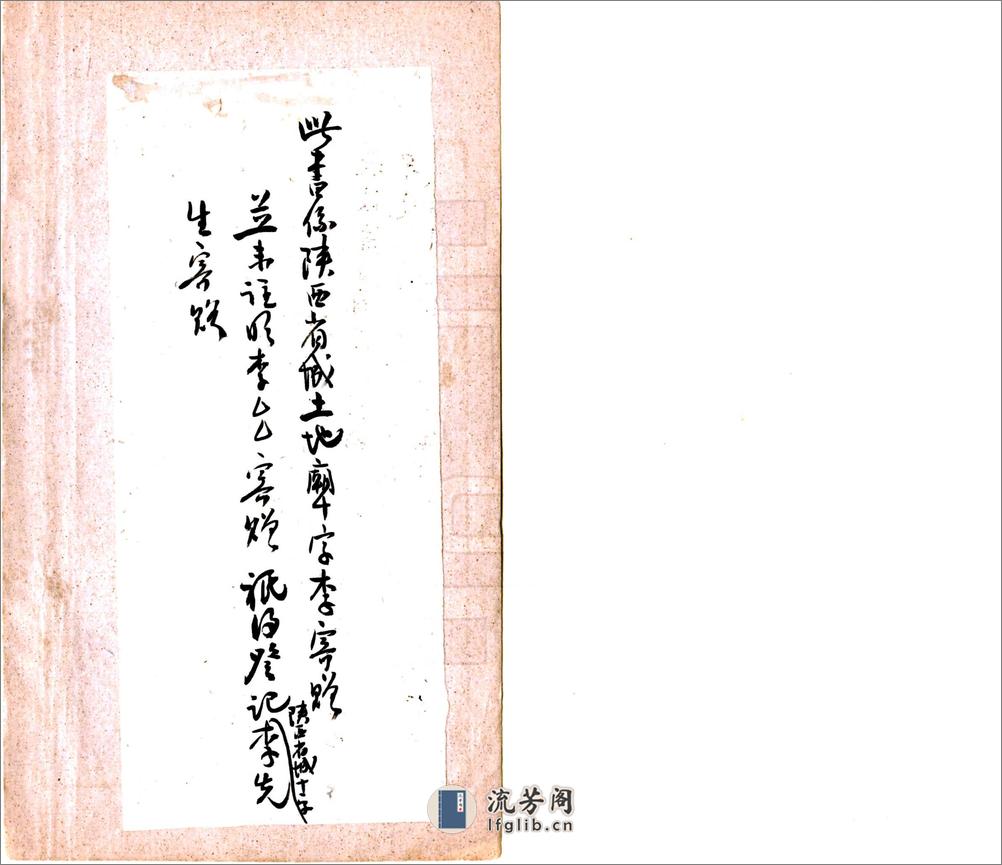 此書係陝西省城土地廟十字李寄贈
並未註明李厶厶寄贈祇得登記李先
陝西省城十字
生寄贈
流芳阁
lfglib.cn